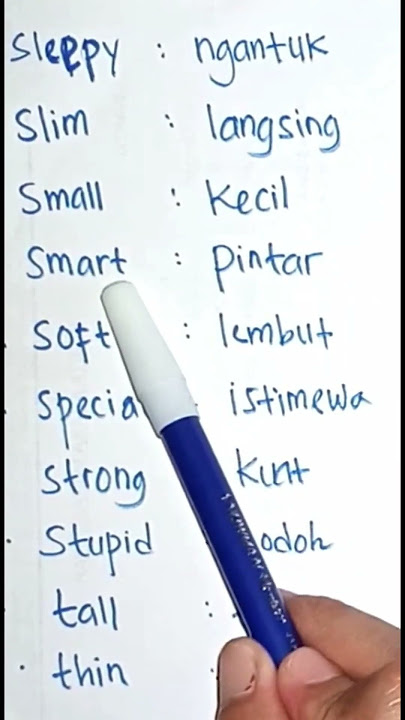 Sleepy : ngantuk
Slim : langsing
Small : kecil
Smart : pintar
Soft : lembut
Specia istimewa
Strong kuat
Stupid : odoh
tall :
thin :